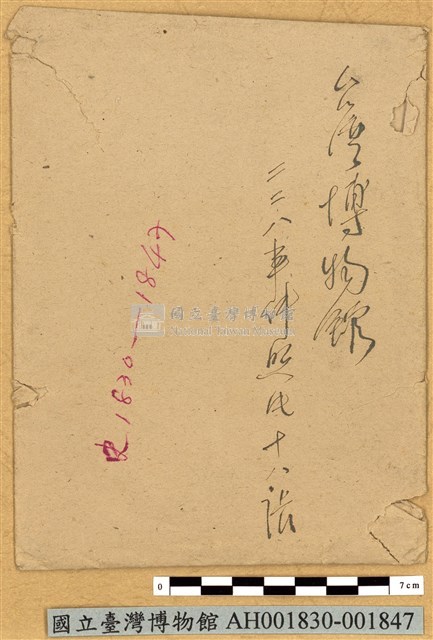 台灣博物館
二二八事件照片十八張
史1830—1847
國立臺灣博物館
National Taiwan Museum
0 7cm
國立臺灣博物館 AH001830-001847